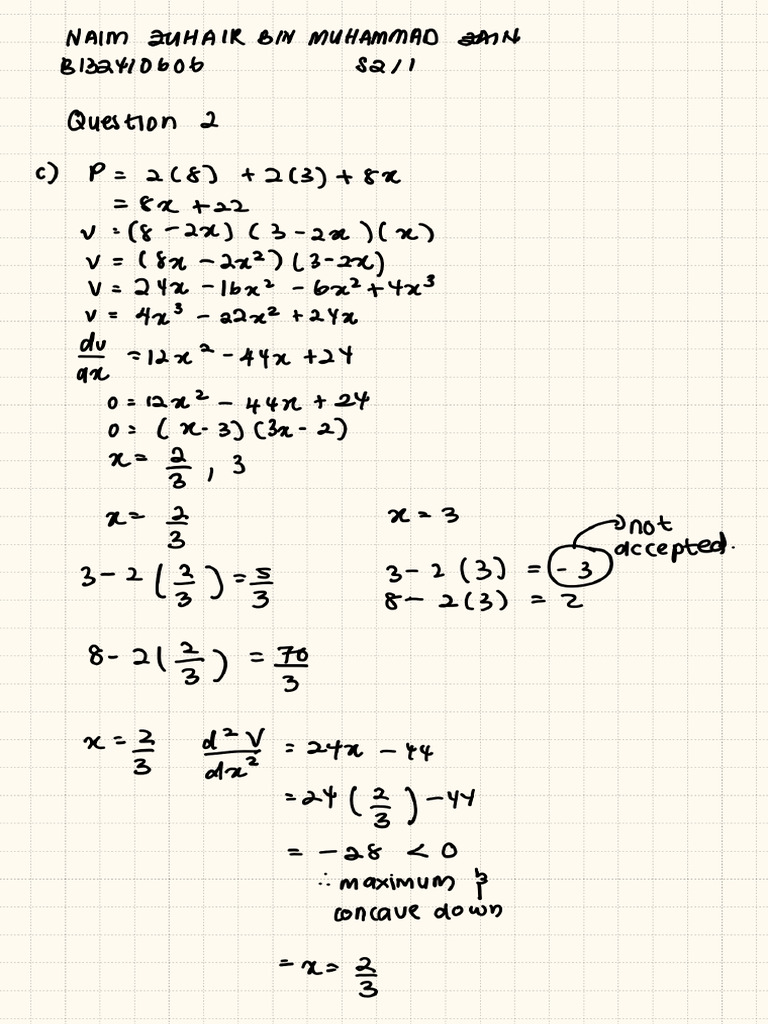 NAIM ZUHAIR BIN MUHAMMAD ZAIN
B132410606 S2/1
Question 2
c) P = 2(8) + 2(3) + 8x
= 8x + 22
V = (8 - 2x) (3 - 2x)(x)
V = (8x - 2x²)(3-2x)
V = 24x - 16x² - 6x² + 4x³
V = 4x³ - 22x² + 24x
dv/dx = 12x² - 44x + 24
0 = 12x² - 44x + 24
0 = (x - 3)(3x - 2)
x = 2/3, 3
x = 2/3 x = 3
not accepted.
3 - 2(2/3) = 5/3 3 - 2(3) = -3
8 - 2(3) = 2
8 - 2(2/3) = 70/3
x = 2/3 d²V/dx² = 24x - 44
= 24(2/3) - 44
= -28 < 0
∴ maximum &
concave down
= x = 2/3